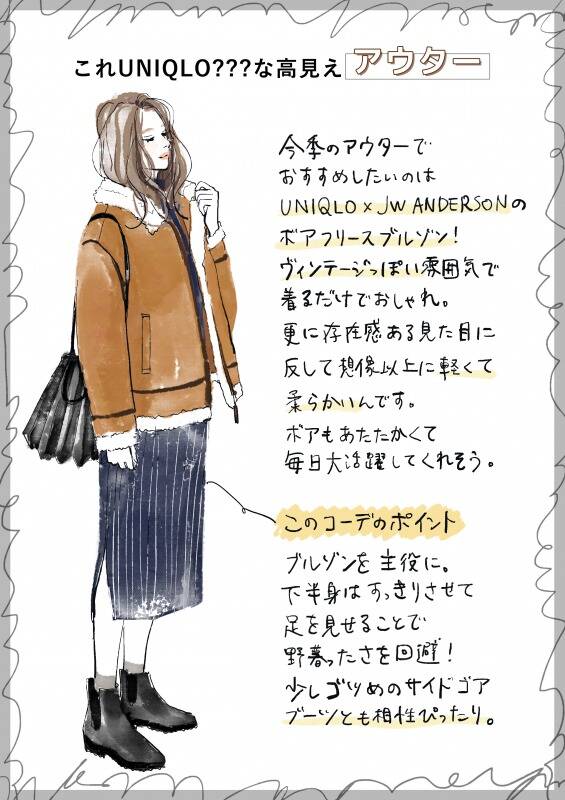 これUNIQLO???な高見え アウター
今季のアウターで
おすすめしたいのは
UNIQLO×JW ANDERSONの
ボアフリースブルゾン！
ヴィンテージっぽい雰囲気で
着るだけでおしゃれ。
更に存在感ある見た目に
反して想像以上に軽くて
柔らかいんです。
ボアもあたたかくて
毎日大活躍してくれそう。
このコーデのポイント
ブルゾンを主役に。
下半身はすっきりさせて
足を見せることで
野暮ったさを回避！
少しゴツめのサイドゴア
ブーツとも相性ぴったり。